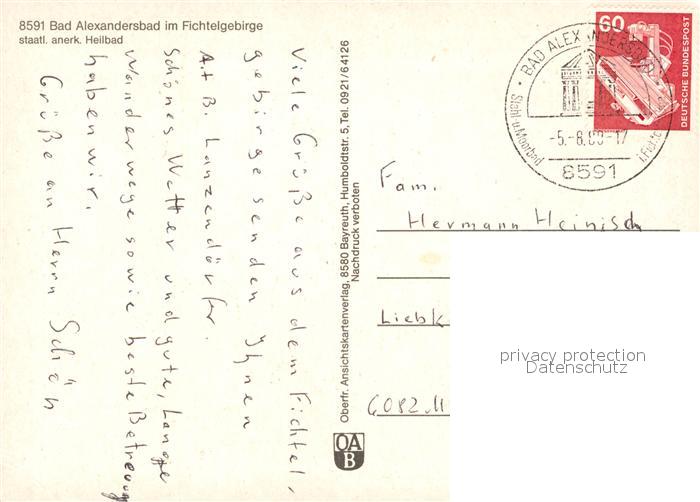 8591 Bad Alexandersbad im Fichtelgebirge
staatl. anerk. Heilbad
Viele Grüße aus dem Fichtel,
gebirge senden Ihnen
A + B. Lanzendörfer.
Schönes Wetter und gute, Lange
Wanderwege sowie beste Betreuung
haben wir.
Grüße an Herrn Schön
Oberfr. Ansichtskartenverlag, 8580 Bayreuth, Humboldtstr. 5, Tel. 0921/64126
Nachdruck verboten
OA
B
60
DEUTSCHE BUNDESPOST
BAD ALEXANDERSBAD
i. Fichtelg.
8591
Fam.
Hermann Heinisch
Liebk
6082 M
privacy protection
Datenschutz